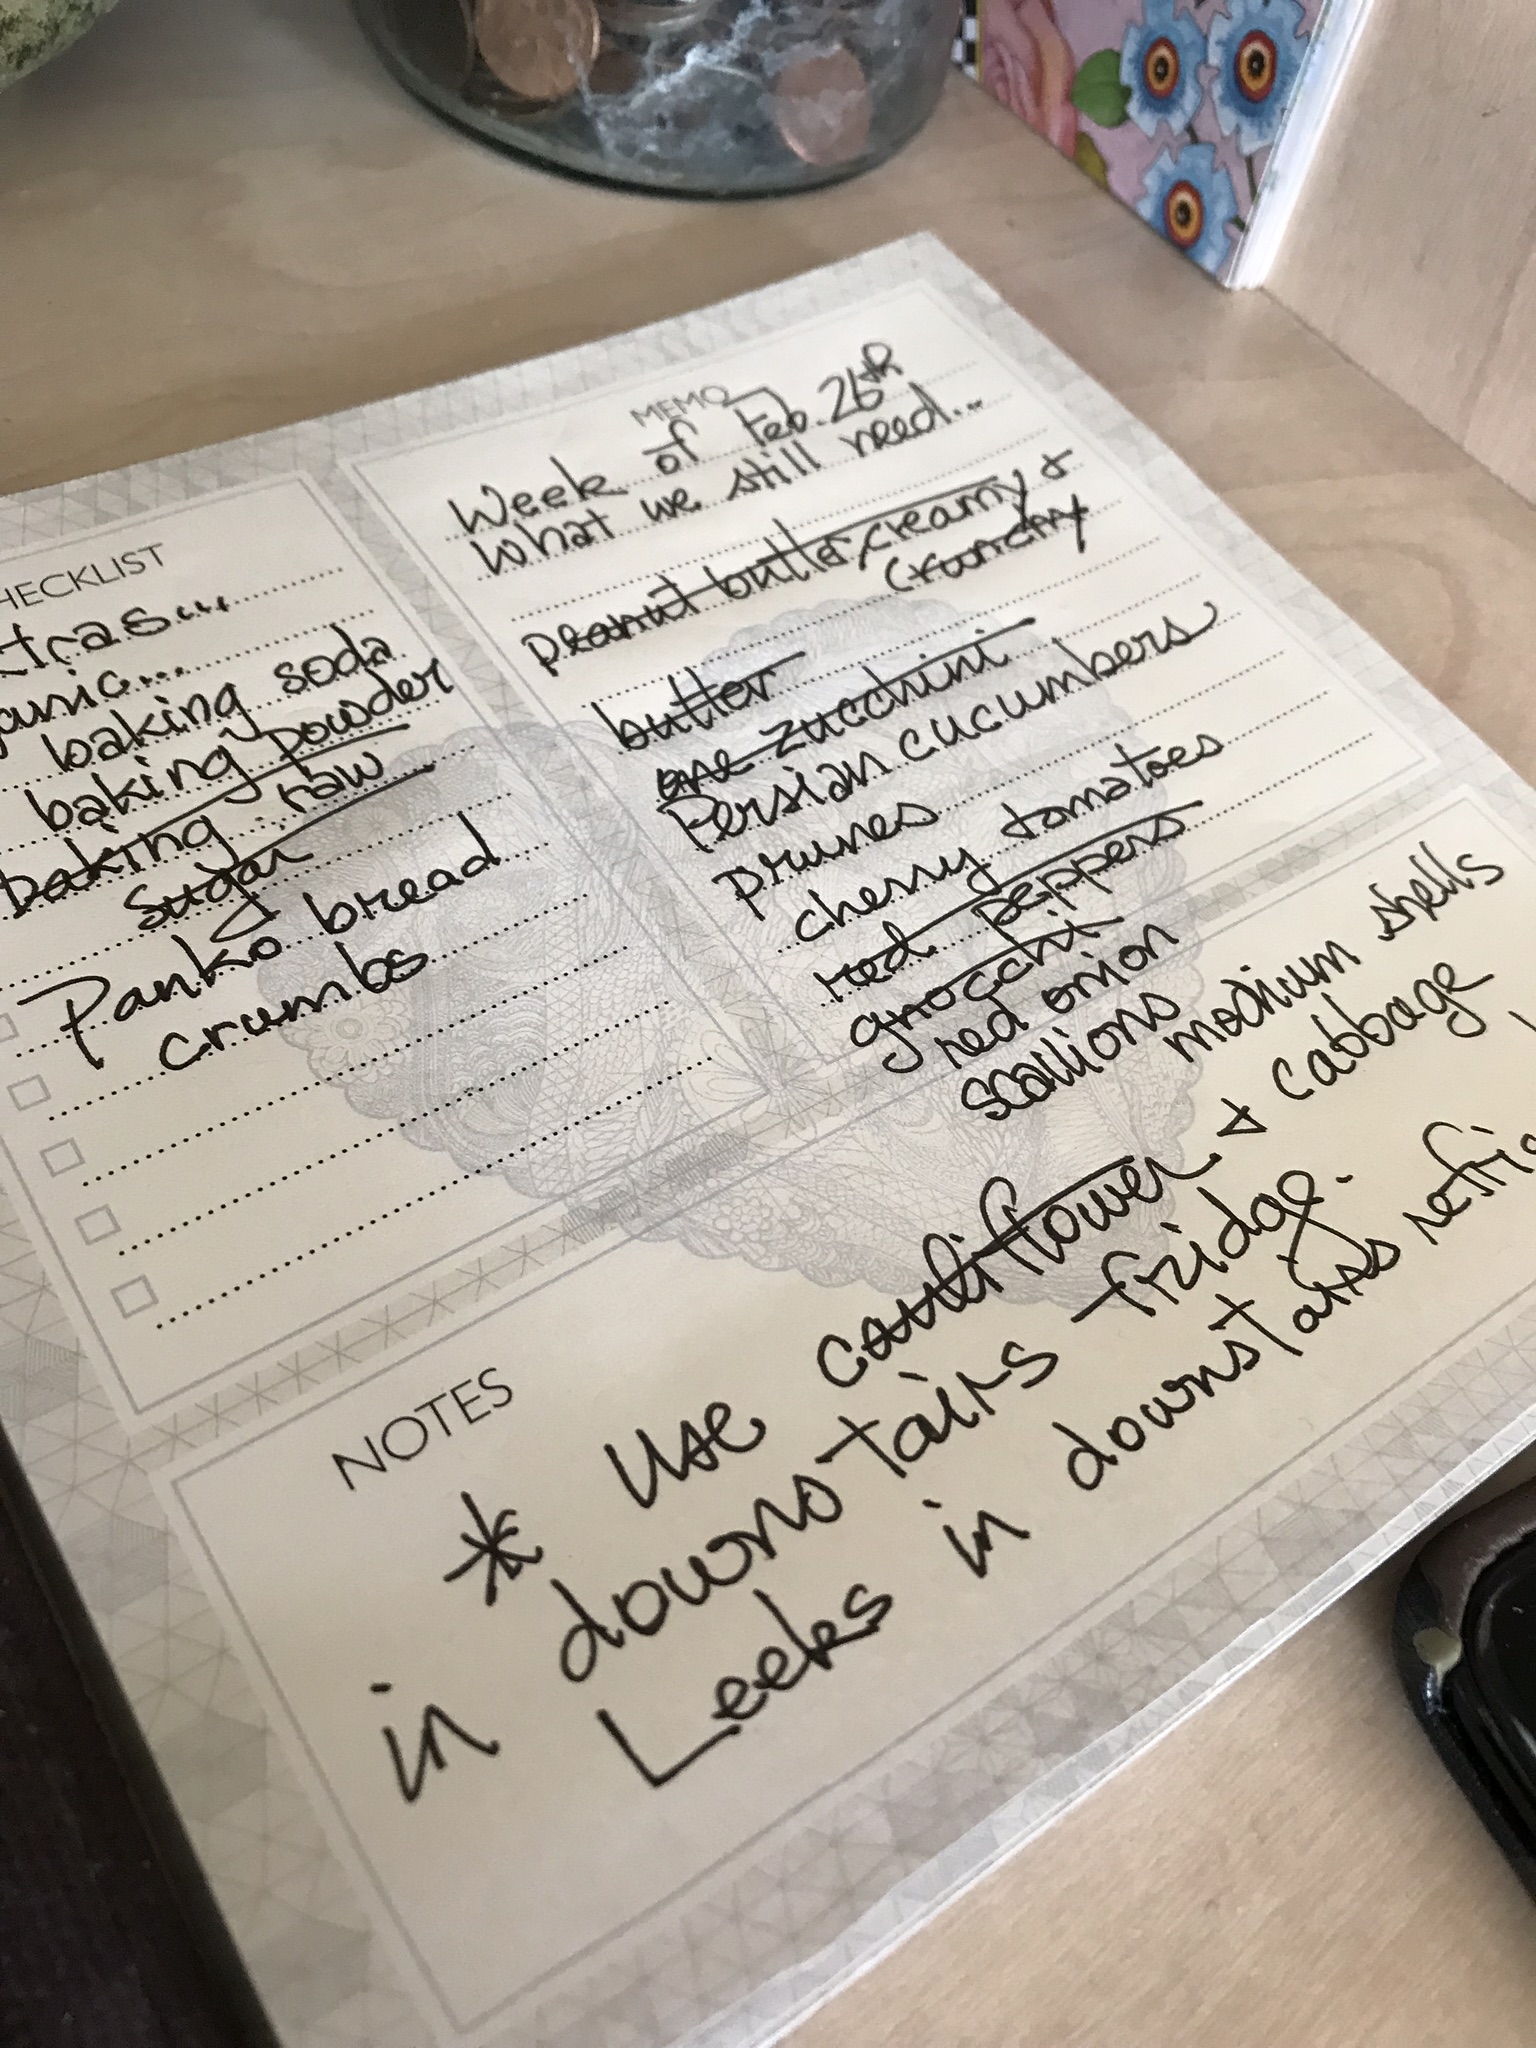 MEMO
Week of Feb. 26th
What we still need...
peanut butter, creamy &
crunchy
butter
one zucchini
Persian cucumbers
prunes
cherry tomatoes
red peppers
gnocchi
red onion
scallions
medium shells
HECKLIST
xtras...
ganic...
baking soda
baking powder
baking
sugar raw
Panko bread
crumbs
NOTES
* Use cauliflower & cabbage
in downstairs fridge.
Leeks in downstairs refri